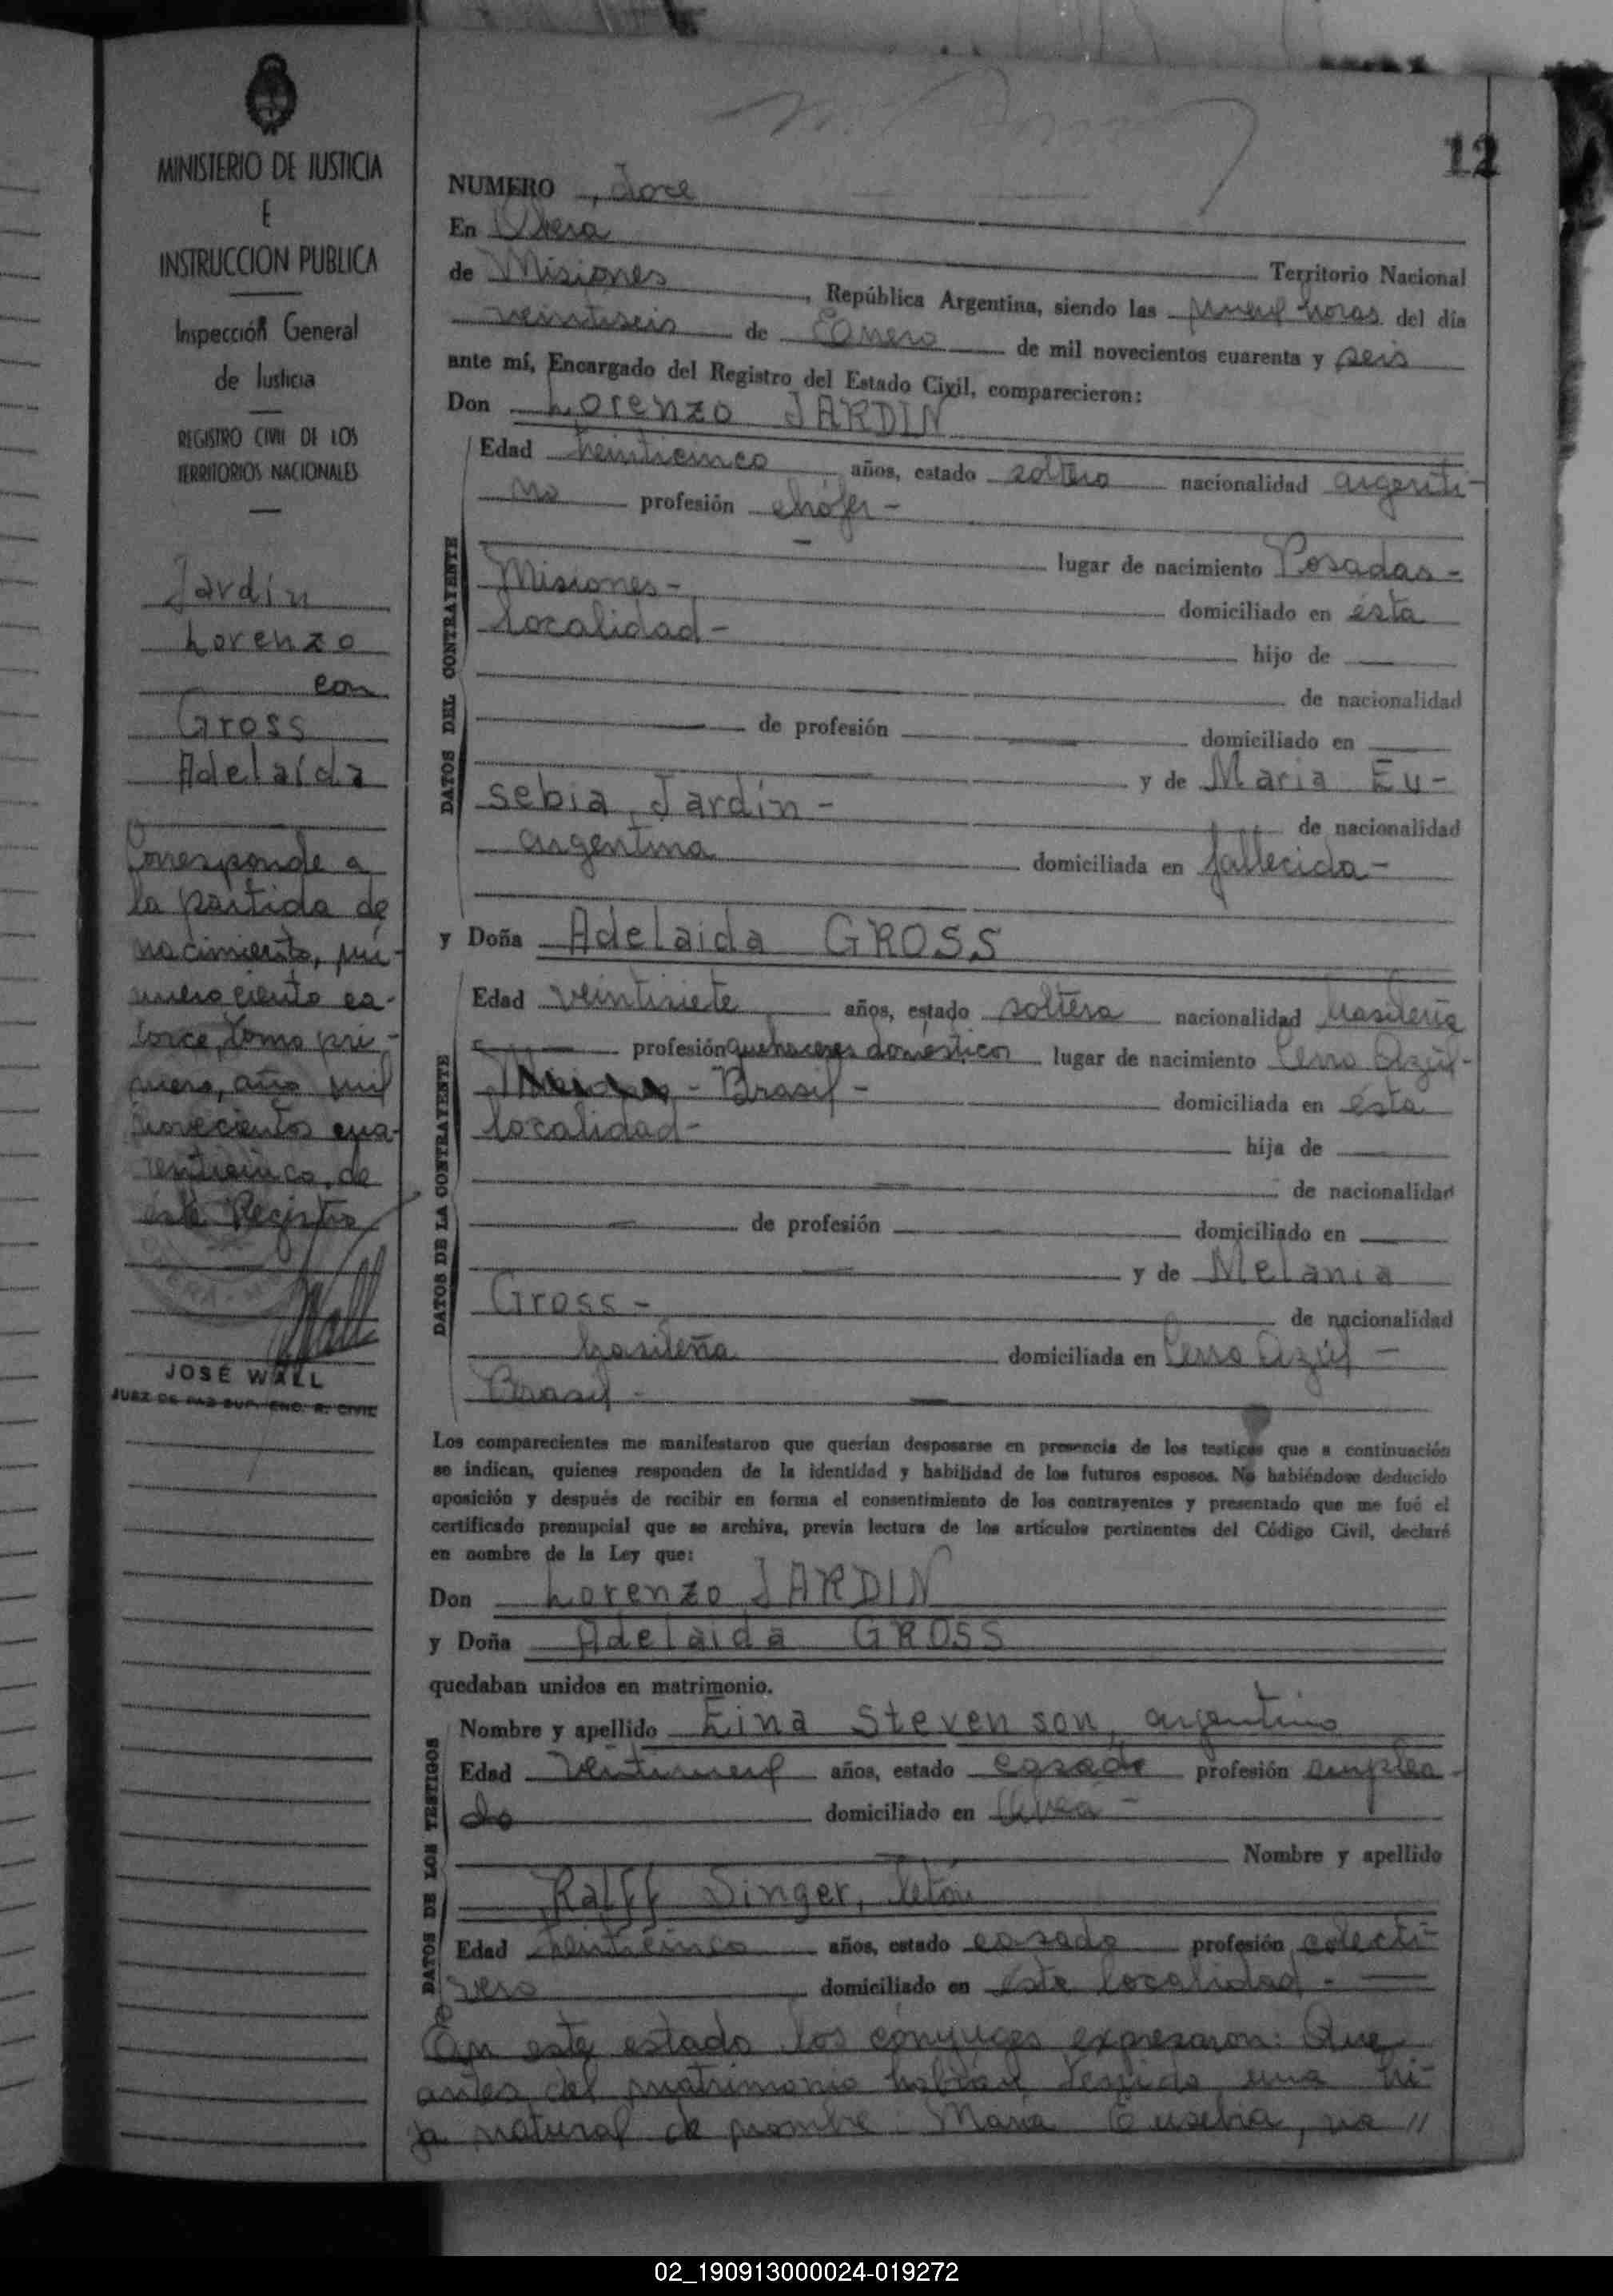 12
MINISTERIO DE JUSTICIA
E
INSTRUCCION PUBLICA
Inspección General
de Justicia
REGISTRO CIVIL DE LOS
TERRITORIOS NACIONALES
Jardín
Lorenzo
con
Gross
Adelaida
Corresponde a
la partida de
nacimiento, nú-
mero ciento ca-
torce, tomo pri-
mero, año mil
novecientos cua-
renticinco, de
este Registro
JOSÉ WALL
JUEZ DE PAZ SUP. ENC. R. CIVIL
NUMERO doce
En Obera
de Misiones Territorio Nacional
, República Argentina, siendo las nueve horas del día
veintiseis de Enero de mil novecientos cuarenta y seis
ante mí, Encargado del Registro del Estado Civil, comparecieron:
Don Lorenzo JARDIN
DATOS DEL CONTRAYENTE
Edad veinticinco años, estado soltero nacionalidad argenti-
no profesión chófer -
lugar de nacimiento Posadas -
Misiones - domiciliado en ésta
localidad - hijo de
de nacionalidad
de profesión domiciliado en
y de Maria Eu-
sebia Jardín - de nacionalidad
argentina domiciliada en fallecida -
y Doña Adelaida GROSS
DATOS DE LA CONTRAYENTE
Edad veintisiete años, estado soltera nacionalidad brasileña
profesión quehaceres domésticos lugar de nacimiento Cerro Azúl -
- Brasil - domiciliada en ésta
localidad - hija de
de nacionalidad
de profesión domiciliado en
y de Melania
Gross - de nacionalidad
brasileña domiciliada en Cerro Azúl -
Brasil -
Los comparecientes me manifestaron que querían desposarse en presencia de los testigos que a continuación
se indican, quienes responden de la identidad y habilidad de los futuros esposos. No habiéndose deducido
oposición y después de recibir en forma el consentimiento de los contrayentes y presentado que me fué el
certificado prenupcial que se archiva, previa lectura de los artículos pertinentes del Código Civil, declaré
en nombre de la Ley que:
Don Lorenzo JARDIN
y Doña Adelaida GROSS
quedaban unidos en matrimonio.
DATOS DE LOS TESTIGOS
Nombre y apellido Eina Stevenson, argentino
Edad veintinueve años, estado casado profesión emplea-
do domiciliado en Obera -
Nombre y apellido
Ralff Singer, letón
Edad veinticinco años, estado casado profesión colecti-
vero domiciliado en esta localidad. -
En este estado los cónyuges expresaron: Que
antes del matrimonio habían tenido una hi-
ja natural de nombre: Maria Eusebia, na //
02_190913000024-019272